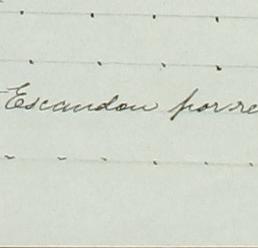 Escandon por re